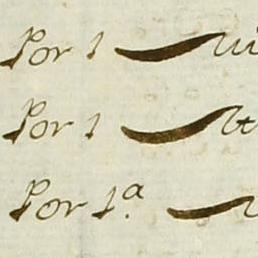 Por 1
Por 1
Por 1ª